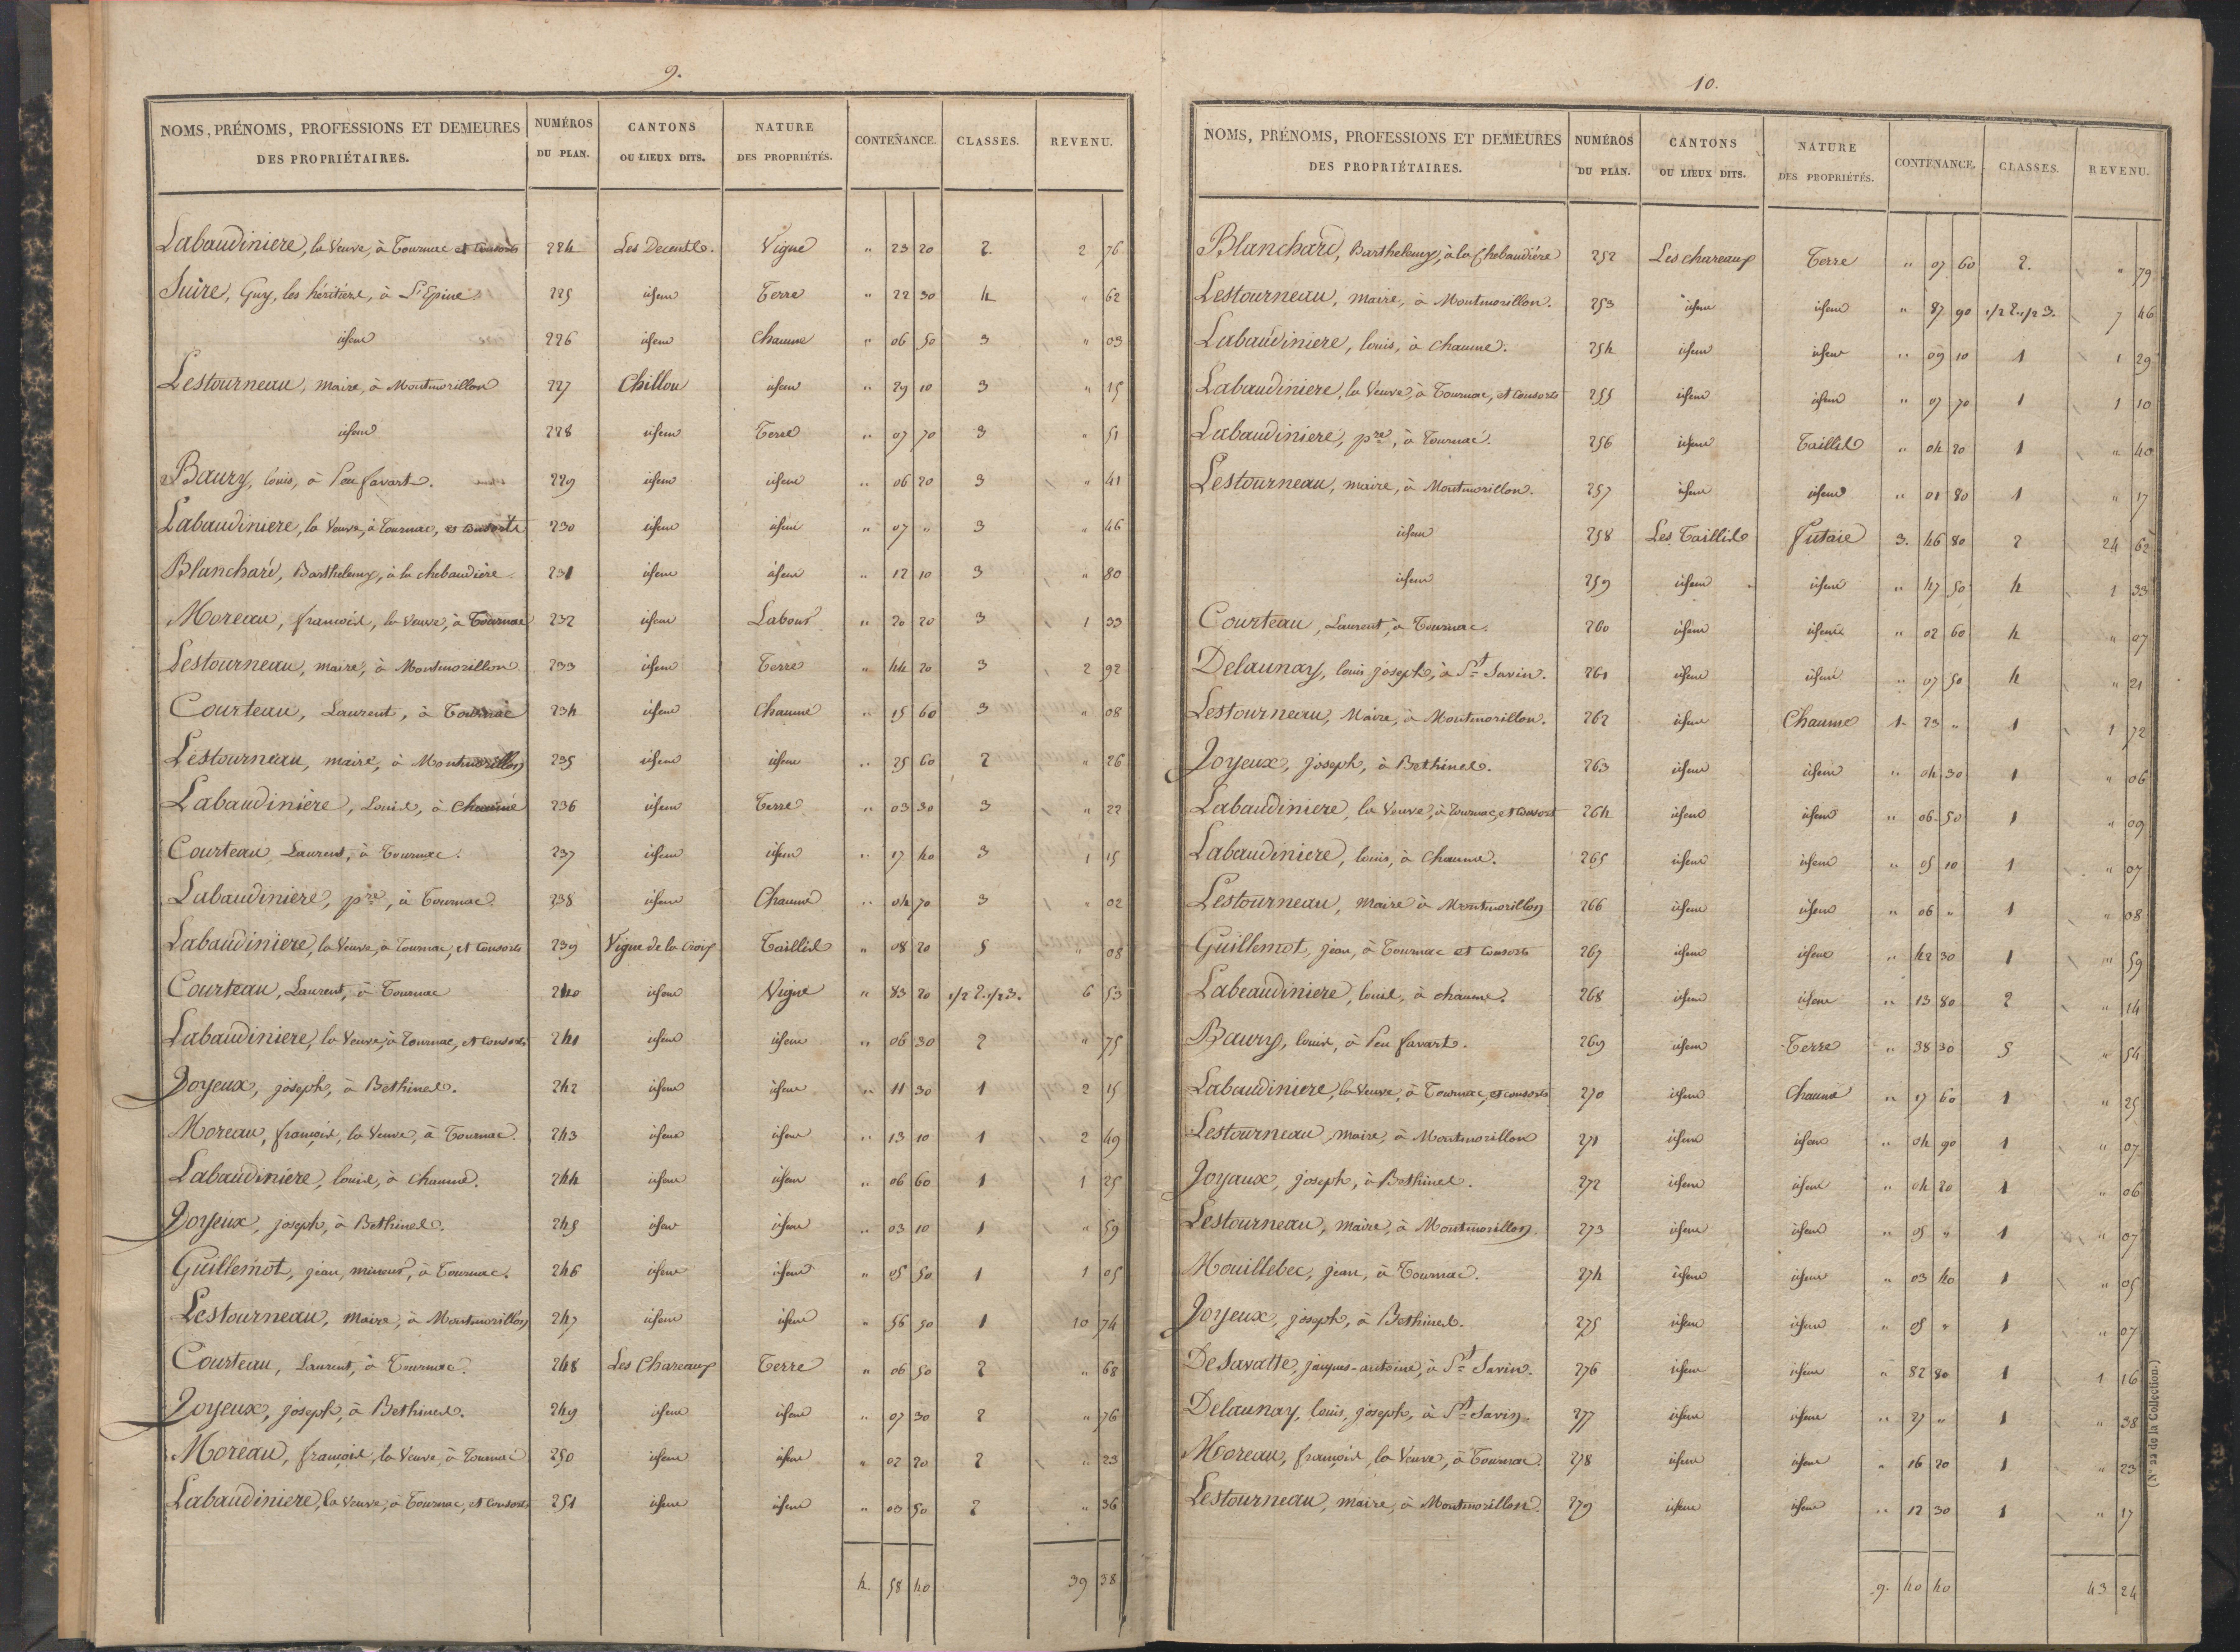 9.
NOMS, PRÉNOMS, PROFESSIONS ET DEMEURES DES PROPRIÉTAIRES. NUMÉROS DU PLAN. CANTONS OU LIEUX DITS. NATURE DES PROPRIÉTÉS. CONTENANCE. CLASSES. REVENU.
Labaudiniere, la Veuve, à Tournac et Consorts 224 Les Vigne " 23 20 2. 2 76
Suire, Guy, les héritiers, à 225 idem Terre " 22 30 4 " 62
idem 226 idem Chaume " 06 50 3 " 03
Lestourneau, maire, à Montmorillon 227 Chillou idem " 29 10 3 " 15
idem 228 idem Terre " 07 70 3 " 51
Baury, louis, à Peu favart. 229 idem idem " 06 20 3 " 41
Labaudiniere, la Veuve, à Tournac, et consorts 230 idem idem " 07 " 3 " 46
Blanchard, Barthelemy, à la chebaudière 231 idem idem " 12 10 3 " 80
Moreau, françois, la Veuve, à Tournac 232 idem Labour " 20 20 3 1 33
Lestourneau, maire, à Montmorillon 233 idem Terre " 44 20 3 2 92
Courteau, Laurent, à Tournac 234 idem Chaume " 15 60 3 " 08
Lestourneau, maire, à Montmorillon 235 idem idem " 25 60 2 " 26
Labaudinière, Louis, à Chaume 236 idem Terre " 03 30 3 " 22
Courteau, Laurent, à Tournac. 237 idem idem " 17 40 3 1 15
Labaudiniere, pre, à Tournac. 238 idem Chaume " 04 70 3 " 02
Labaudiniere, la Veuve, à Tournac, et Consorts 239 Vigne de la Croix Taillis " 08 20 5 " 08
Courteau, Laurent, à Tournac 240 idem Vigne " 83 20 1/2 2. 1/2 3. 6 53
Labaudiniere, la Veuve, à Tournac, et Consorts 241 idem idem " 06 30 2 " 75
Joyeux, joseph, à Bethines. 242 idem idem " 11 30 1 2 15
Moreau, françois, la Veuve, à Tournac. 243 idem idem " 13 10 1 2 49
Labaudiniére, louis, à Chaume. 244 idem idem " 06 60 1 1 25
Joyeux, joseph, à Bethines. 245 idem idem " 03 10 1 " 59
Guillemot, jean, mineur, à Tournac. 246 idem idem " 05 50 1 1 05
Lestourneau, maire, à Montmorillon 247 idem idem " 56 50 1 10 74
Courteau, Laurent, à Tournac. 248 Les Chareaux Terre " 06 50 2 " 68
Joyeux, joseph, à Bethines. 249 idem idem " 07 30 2 " 76
Moreau, françois, la Veuve, à Tournac 250 idem idem " 02 20 2 " 23
Labaudiniere, la Veuve, à Tournac, et Consorts 251 idem idem " 03 50 2 " 36
4. 58 40 39 38
10.
NOMS, PRÉNOMS, PROFESSIONS ET DEMEURES DES PROPRIÉTAIRES. NUMÉROS DU PLAN. CANTONS OU LIEUX DITS. NATURE DES PROPRIÉTÉS. CONTENANCE. CLASSES. REVENU.
Blanchard, Barthelemy, à la Chebaudière 252 Les chareaux Terre " 07 60 2. " 79
Lestourneau, maire, à Montmorillon. 253 idem idem " 87 90 1/2 2. 1/2 3. 7 46
Labaudiniere, louis, à chaume. 254 idem idem " 09 10 1 1 29
Labaudiniere, la Veuve, à Tournac, et Consorts 255 idem idem " 07 70 1 1 10
Labaudiniere, pre, à Tournac. 256 idem Taillis " 04 20 1 " 40
Lestourneau, maire, à Montmorillon. 257 idem idem " 01 80 1 " 17
idem 258 Les Taillis Futaie 3. 46 80 2 24 62
idem 259 idem idem " 47 50 4 1 33
Courteau, Laurent, à Tournac. 260 idem idem " 02 60 4 " 07
Delaunay, louis joseph, à St Savin. 261 idem idem " 07 50 4 " 21
Lestourneau, Maire, à Montmorillon. 262 idem Chaume 1. 23 " 1 1 72
Joyeux, joseph, à Bethines. 263 idem idem " 04 30 1 " 06
Labaudiniere, la Veuve, à Tournac, et Consorts 264 idem idem " 06 50 1 " 09
Labaudiniere, louis, à Chaume. 265 idem idem " 05 10 1 " 07
Lestourneau, maire à Montmorillon 266 idem idem " 06 " 1 " 08
Guillemot, jean, à Tournac et Consorts 267 idem idem " 42 30 1 " 59
Labeaudiniere, louis, à chaume. 268 idem idem " 13 80 2 " 14
Baury, louis, à Peu favart. 269 idem Terre " 38 30 5 " 54
Labaudiniere, la Veuve, à Tournac, et consorts 270 idem Chaume " 17 60 1 " 25
Lestourneau, maire, à Montmorillon 271 idem idem " 04 90 1 " 07
Joyaux, joseph, à Bethines. 272 idem idem " 04 20 1 " 06
Lestourneau, maire, à Montmorillon 273 idem idem " 05 " 1 " 07
Mouillebec, jean, à Tournac. 274 idem idem " 03 40 1 " 05
Joyeux, joseph, à Bethines. 275 idem idem " 05 " 1 " 07
De Savatte, jacques-antoine, à St Savin. 276 idem idem " 82 80 1 1 16
Delaunay, louis, joseph, à St Savin 277 idem idem " 27 " 1 " 38
Moreau, françois, la Veuve, à Tournac. 278 idem idem " 16 20 1 " 23
Lestourneau, maire, à Montmorillon. 279 idem idem " 12 30 1 " 17
9. 40 40 43 24
(No 22 de la Collection.)